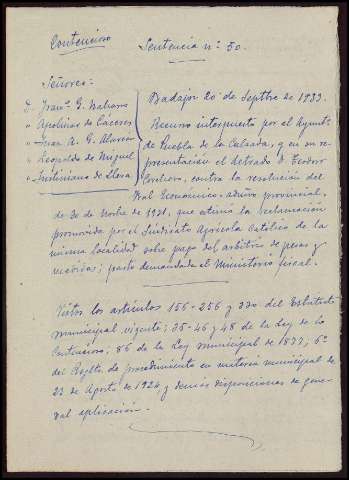 Contencioso
Sentencia nº 50.
Señores:
D. Franco G.
" Apolinar de Cáceres
" Juan A. G. Alarcón
" Leopoldo de Miguel
" Justiniano de Llera
Badajoz 20 de Septbre de 1933.
Recurso interpuesto por el Ayuntº
de Puebla de la Calzada, y en su re-
presentación el letrado D. Teodoro
contra la resolución del
Tral Económico-admvo provincial,
de 30 de Novbre de 1931, que estimó la reclamación
promovida por el Sindicato Agrícola Católico de la
misma localidad sobre pago del arbitrio de pesas y
medidas; parte demandada el Ministerio fiscal.
Vistos los artículos 156-256 y 330 del Estatuto
municipal vigente; 35-46 y 48 de la Ley de lo
Contencioso, 86 de la Ley municipal de 1877, 6º
del Reglto de procedimiento en materia municipal de
23 de Agosto de 1924 y demás disposiciones de gene-
ral aplicación.